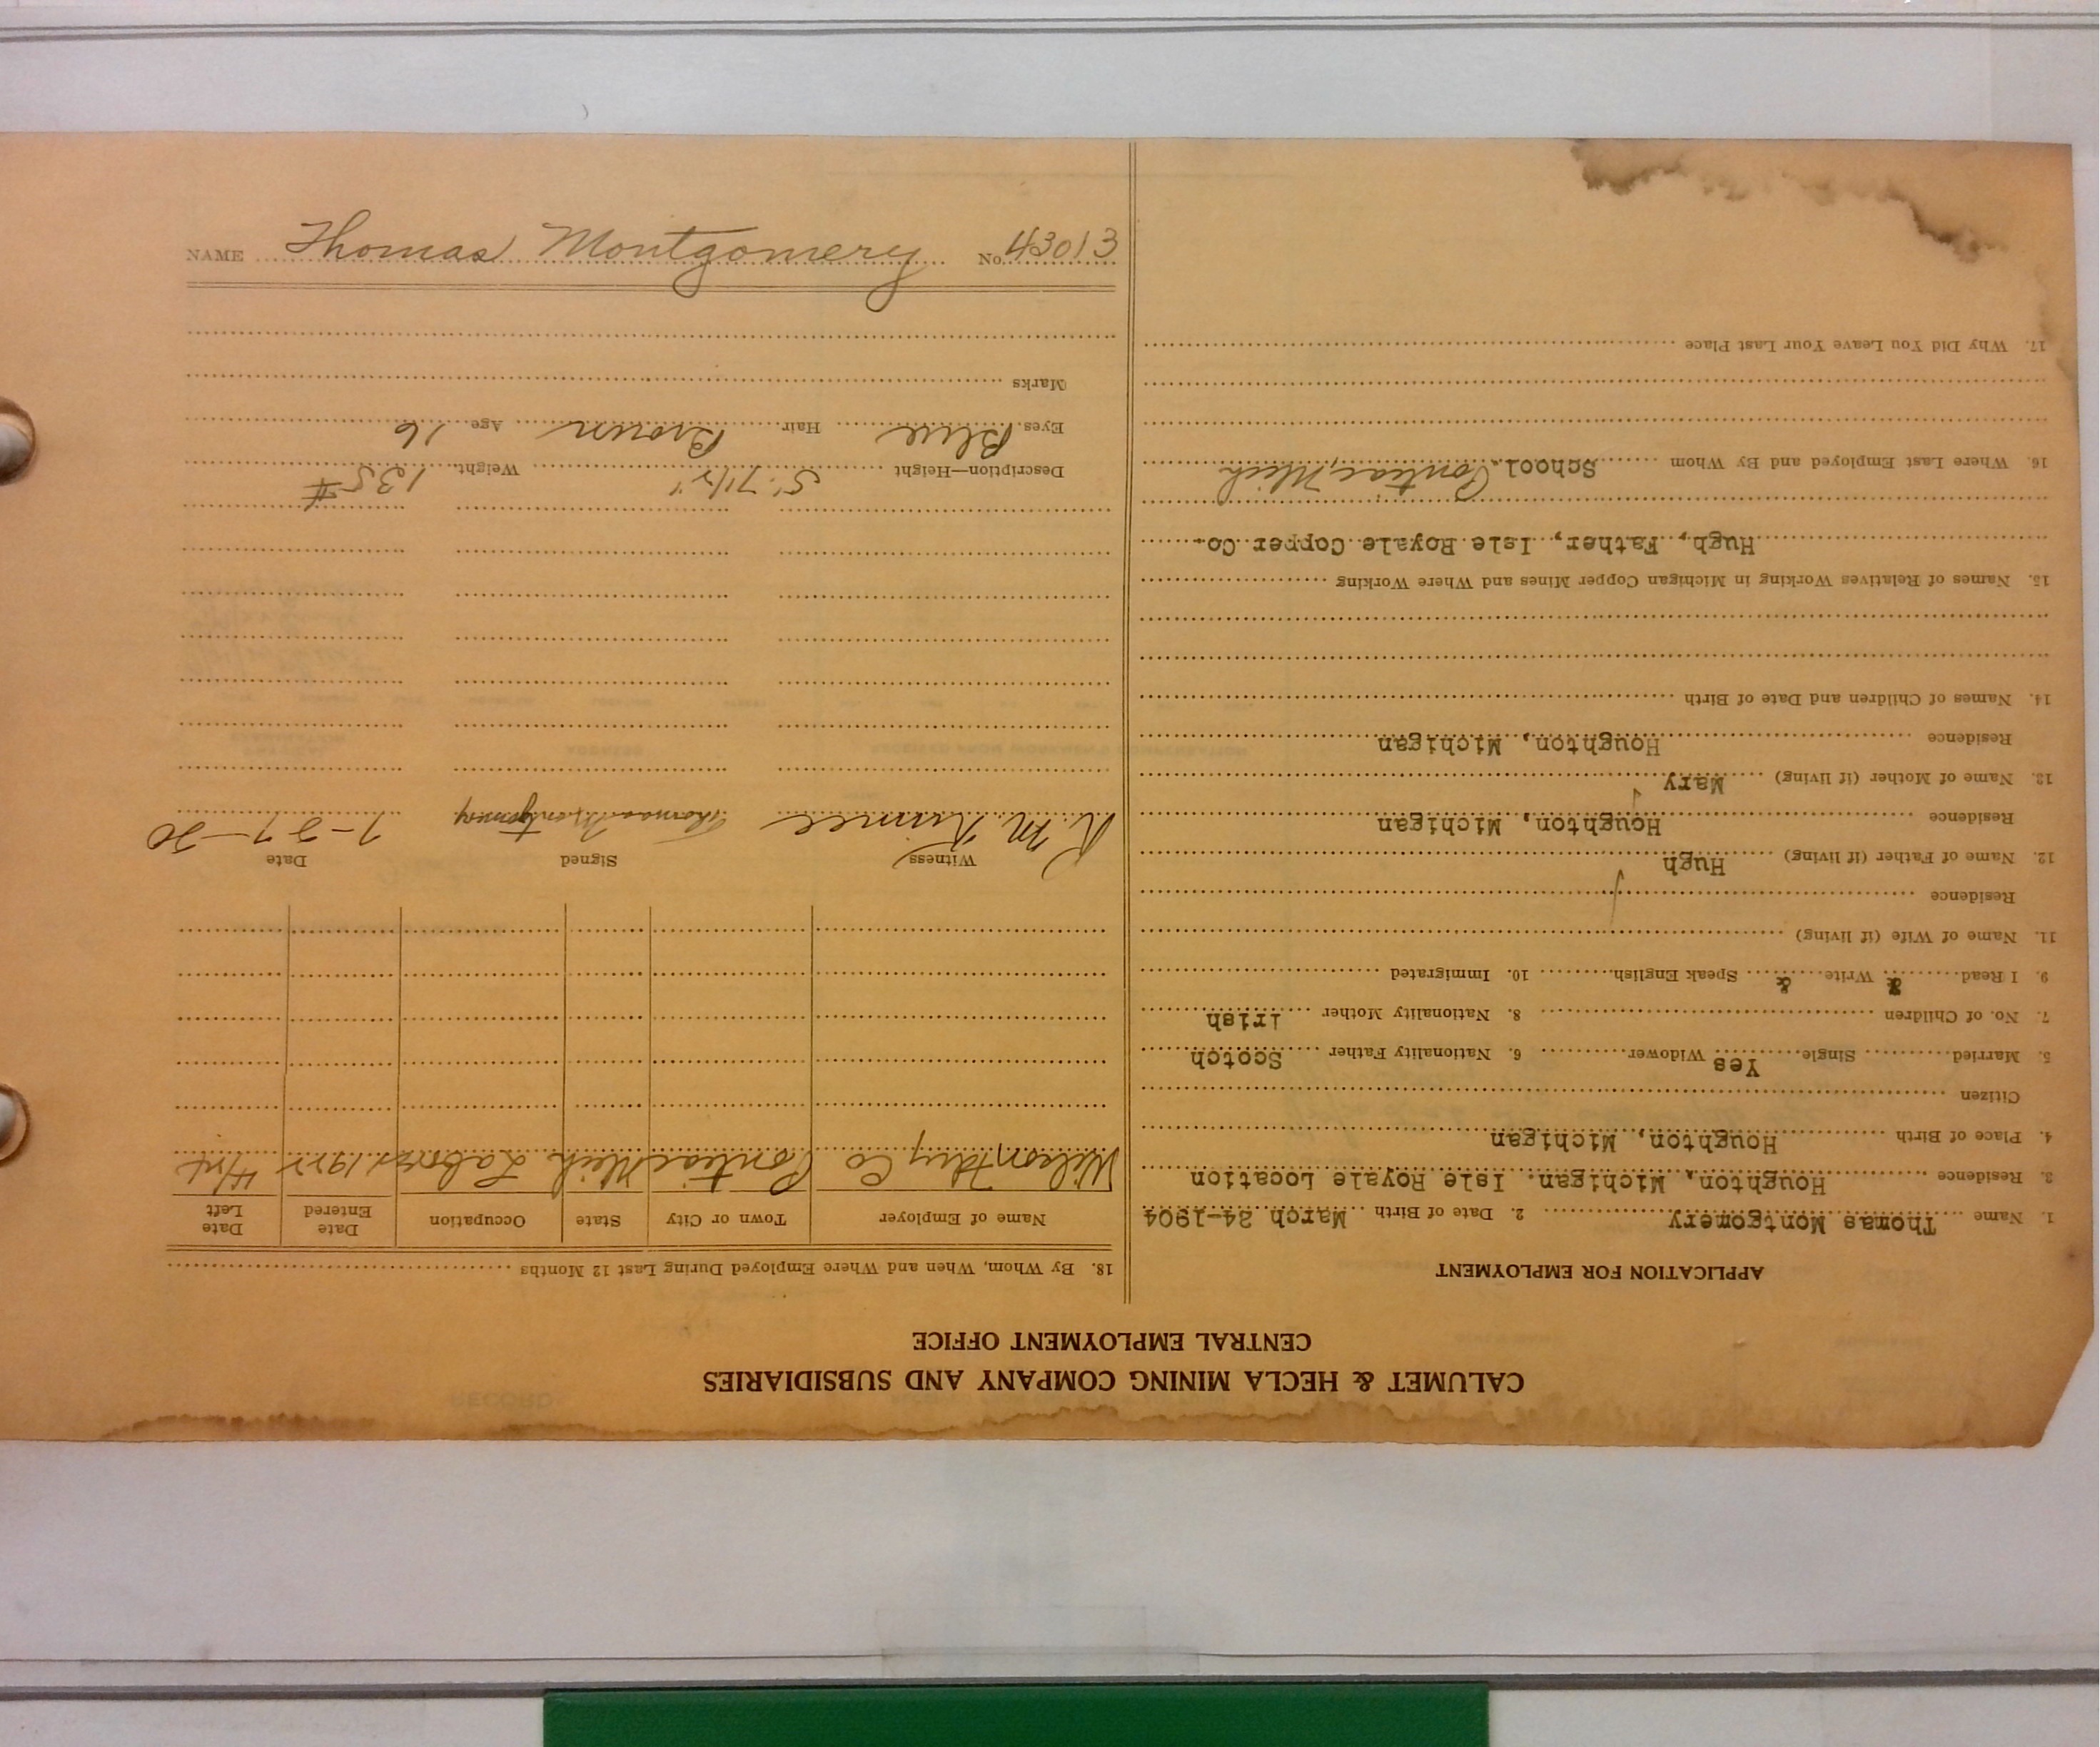 CALUMET & HECLA MINING COMPANY AND SUBSIDIARIES
CENTRAL EMPLOYMENT OFFICE
APPLICATION FOR EMPLOYMENT
1. Name Thomas Montgomery 2. Date of Birth March 24-1904
3. Residence Houghton, Michigan. Isle Royale Location
4. Place of Birth Houghton, Michigan
Citizen
5. Married Single Yes Widower 6. Nationality Father Scotch
7. No. of Children 8. Nationality Mother Irish
9. I Read & Write & Speak English 10. Immigrated
11. Name of Wife (if living)
Residence
12. Name of Father (if living) Hugh
Residence Houghton, Michigan
13. Name of Mother (if living) Mary
Residence Houghton, Michigan
14. Names of Children and Date of Birth
15. Names of Relatives Working in Michigan Copper Mines and Where Working
Hugh, Father, Isle Royale Copper Co.
16. Where Last Employed and By Whom School. Pontiac, Mich
17. Why Did You Leave Your Last Place
18. By Whom, When and Where Employed During Last 12 Months
Name of Employer Town or City State Occupation Date Entered Date Left
Wilson Co Pontiac Mich Laborer 1922
Witness Signed Date
R. M. Thomas Montgomery 7-27-20
Description—Height 5' 7 1/2" Weight 135 #
Eyes Blue Hair Brown Age 16
Marks
NAME Thomas Montgomery No. 43013
RECORD